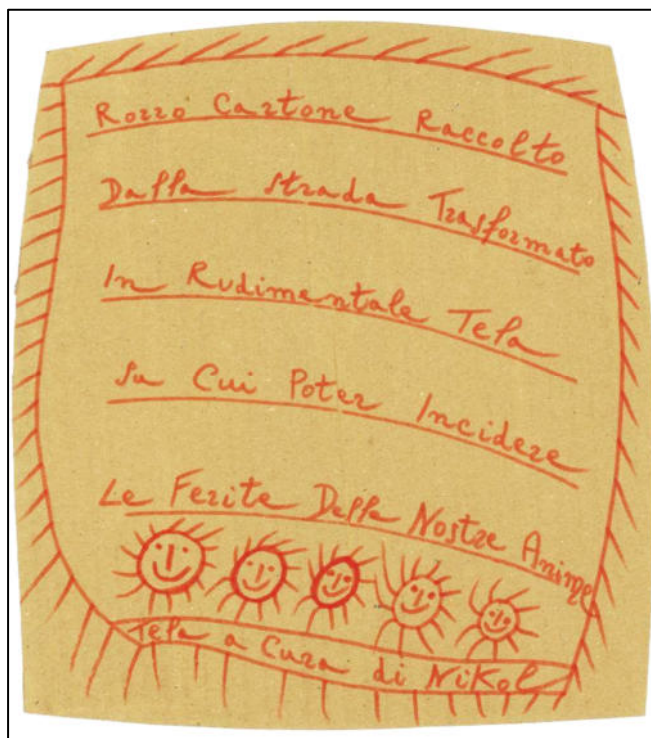 Rozzo Cartone Raccolto
Dalla Strada Trasformato
In Rudimentale Tela
Su Cui Poter Incidere
Le Ferite Delle Nostre Anime
Tela a Cura di Nikol